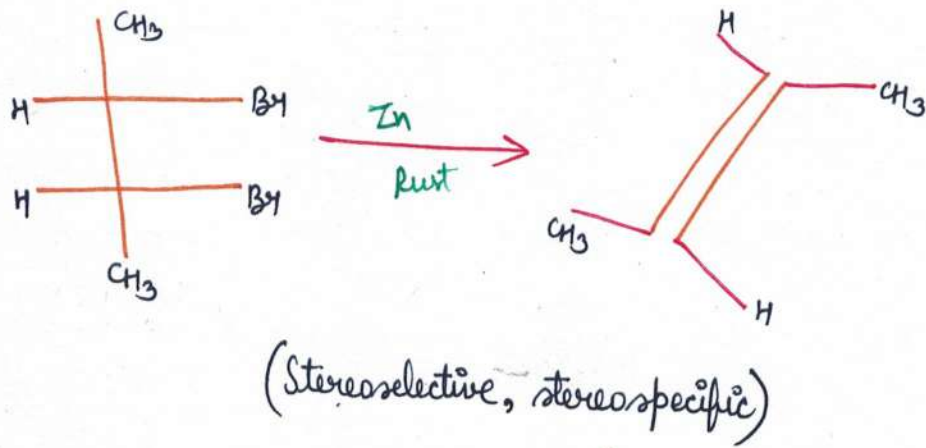 CH3
H
Br
H
Br
CH3
Zn
Rust
H
CH3
CH3
H
(Stereoselective, stereospecific)